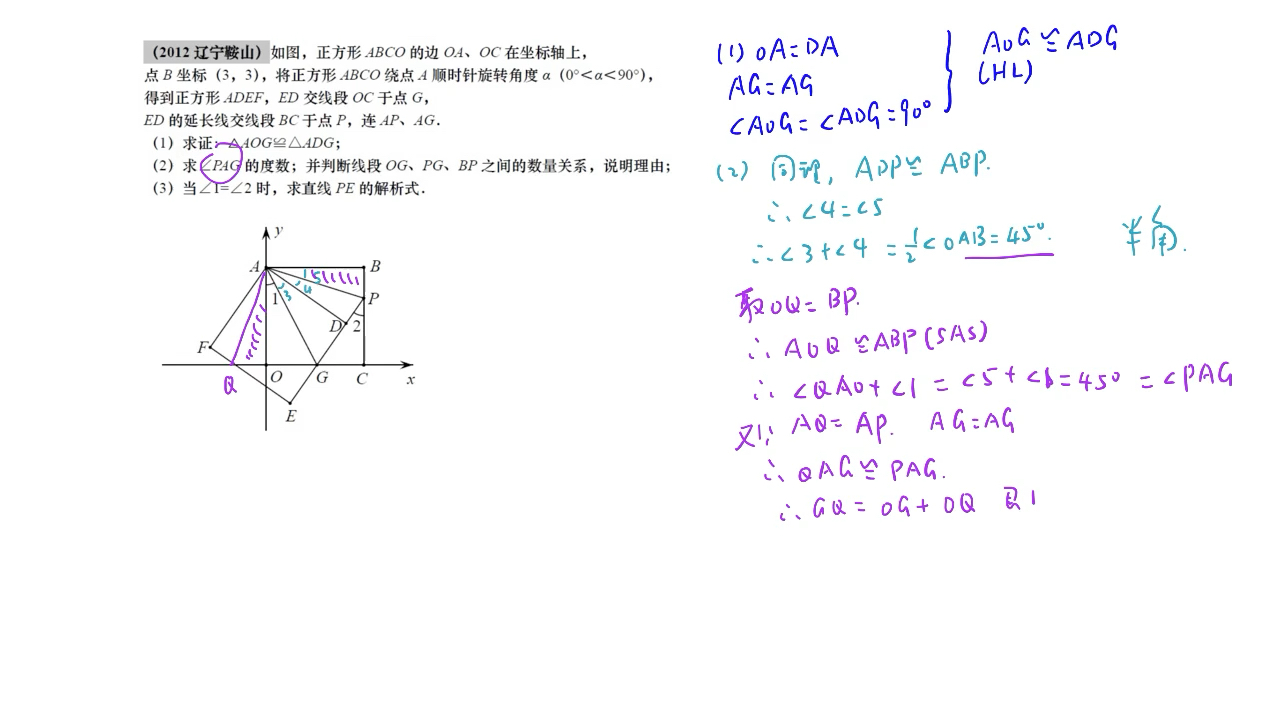 (2012 辽宁鞍山) 如图，正方形 ABCO 的边 OA、OC 在坐标轴上，
点 B 坐标 (3，3)，将正方形 ABCO 绕点 A 顺时针旋转角度 α (0°＜α＜90°)，
得到正方形 ADEF，ED 交线段 OC 于点 G，
ED 的延长线交线段 BC 于点 P，连 AP、AG．
(1) 求证：△AOG≌△ADG；
(2) 求∠PAG 的度数；并判断线段 OG、PG、BP 之间的数量关系，说明理由；
(3) 当∠1=∠2 时，求直线 PE 的解析式．
y
A
B
1
5
3
4
1
P
D
2
F
Q
O
G
C
x
E
(1) OA=DA
AG=AG
∠AOG=∠ADG=90°
AOG≌ADG
(HL)
(2) 同理, ADP≌ABP.
∴∠4=∠5
∴∠3+∠4=½∠OAB=45°.
半角.
取OQ=BP.
∴AOQ≌ABP(SAS)
∴∠QAO+∠1=∠5+∠1=45°=∠PAG
又∵AQ=AP. AG=AG
∴QAG≌PAG.
∴GQ=OG+OQ